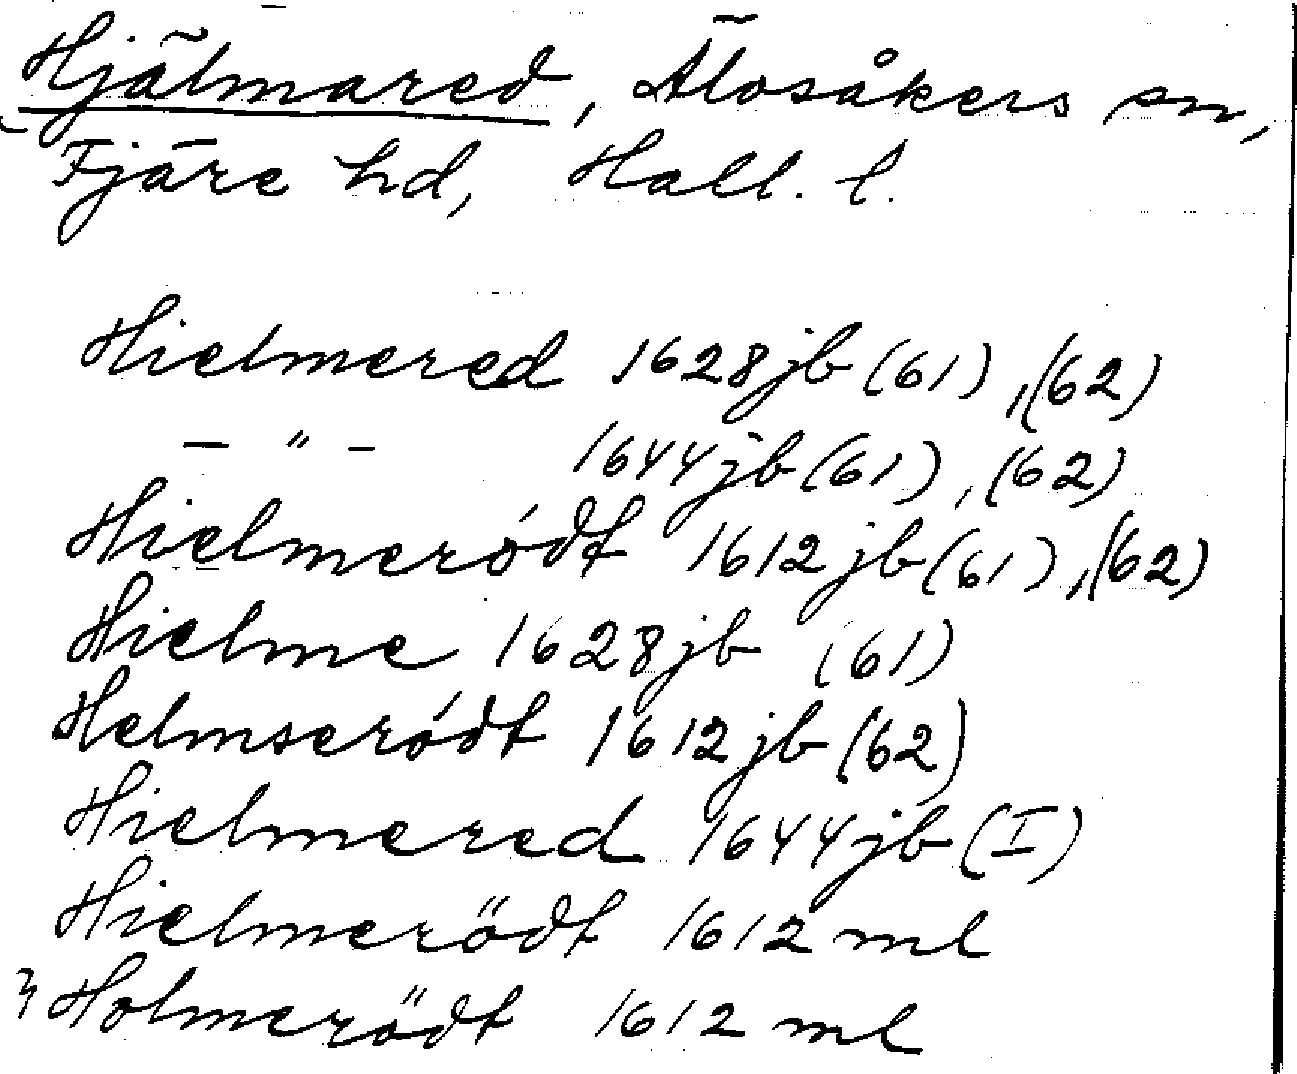 Hjälmared, Älvsåkers sn,
Fjäre hd, Hall. l.
Hielmered 1628 jb (61), (62)
— " — 1644 jb (61), (62)
Hielmeródt 1612 jb (61), (62)
Hielme 1628 jb (61)
Helmseródt 1612 jb (62)
Hielmered 1644 jb (I)
Hielmerödt 1612 ml
Holmerödt 1612 ml